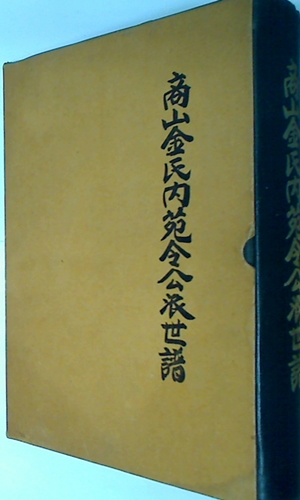 商山金氏內苑令公派世譜
商山金氏內苑令公派世譜